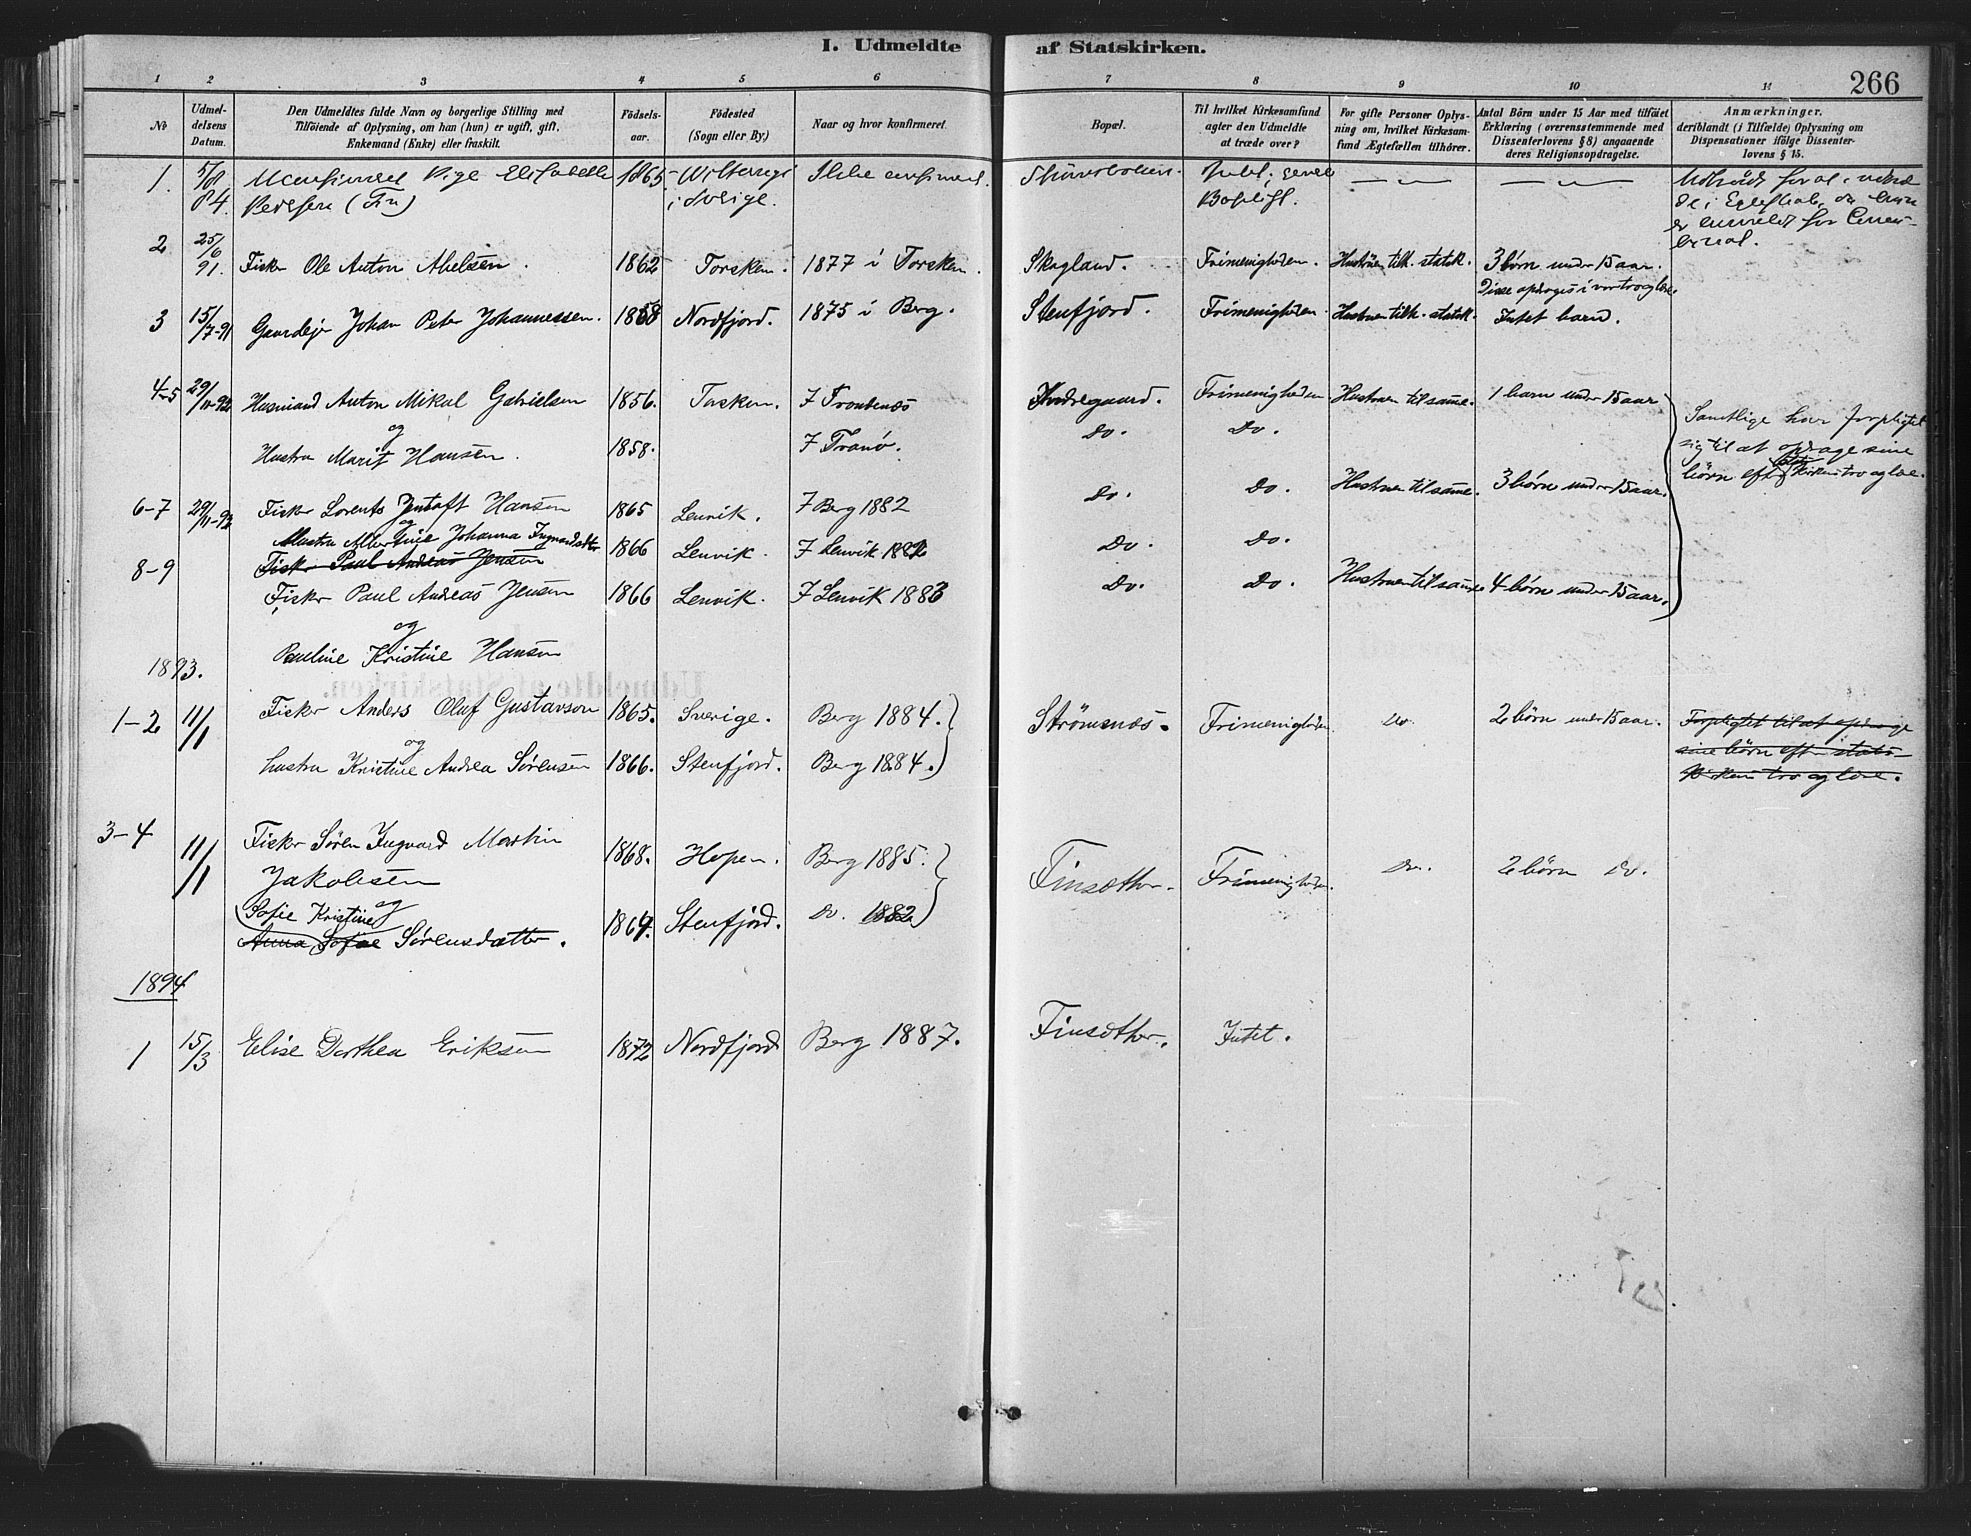 I. Udmeldte af Statskirken.
266
1 2 3 4 5 6 7 8 9 10 11
No
Udmel-
delsens
Datum.
Den Udmeldtes fulde Navn og borgerlige Stilling med
Tilføiende af Oplysning, om han (hun) er ugift, gift,
Enkemand (Enke) eller fraskilt.
Fødsels-
aar.
Fødested
(Sogn eller By)
Naar og hvor konfirmeret.
Bopæl.
Til hvilket Kirkesamfund
agter den Udmeldte
at træde over?
For gifte Personer Oplys-
ning om, hvilket Kirkesam-
fund Ægtefællen tilhører.
Antal Børn under 15 Aar med tilføiet
Erklæring (overensstemmende med
Dissenterlovens § 8) angaaende
deres Religionsopdragelse.
Anmærkninger,
deriblandt (i Tilfælde) Oplysning om
Dispensationer ifølge Dissenter-
lovens § 15.
1. 5/8 Pige 1865
84. Pedersen (Fin) i Sverige.
2 25/6 91. Fisker Ole Anton Abelsen. 1862 Torsken. 1877 i Torsken. Skagland. Frimenigheden. Hustruen tilh. statsk. 3 børn under 15 aar.
Disse opdrages i vor tro og lære.
3 15/7-91 Gaardejer Johan Peter Johannessen. 1858 Nordfjord. 1875 i Berg. Stenfjord. Frimenigheden. Hustruen tilh. statsk. Intet barn.
4-5 29/11-92 Husmand Anton Mikal Gabrielsen 1856. Torsken. I Trondenæs Indregaard. Frimenigheden Hustruen til samme. 1 barn under 15 aar
og
Hustru Marit Hansen. 1858. I Tranø. Do. Do.
Samtlige har forpligtet
sig til at opdrage sine
børn efter statskirkens tro og lære.
6-7 29/11-92 Fisker Lorents Hansen 1865 Lenvik. I Berg 1882 Do. Do. Hustruen til samme. 3 børn under 15 aar.
og
Hustru Albertine Johanna Ingvardsdatter 1866 Lenvik. I Lenvik Do. Do.
8-9 Fisker Paul Andreas Jensen
Fisker Paul Andreas Jensen 1866 Lenvik. I Lenvik 1883 Do. Do. Hustruen til samme 4 børn under 15 aar.
og
Pauline Kristine Hansen
1893.
1-2 11/1 Fisker Anders Oluf Gustavson 1865. Sverige. Berg 1884. Strømsnæs. Frimenigheden Do. 2 børn under 15 aar. Forpligtet til at opdrage
sine børn efter stats-
kirkens tro og lære.
og
hustru Kristine Andrea Sørensen 1866. Stenfjord. Berg 1884.
3-4 11/1 Fisker Søren Ingvard Martin
Jakobsen 1868. Hopen. Berg 1885. Finsæther. Frimenigheden. Do. 2 børn Do.
og
Sofie Kristine
Anna Sofie Sørensdatter. Stenfjord. Do. 1882
1894
1 15/3 Elise Dorthea Eriksen 1872 Nordfjord Berg 1887. Finsæther. Intet.